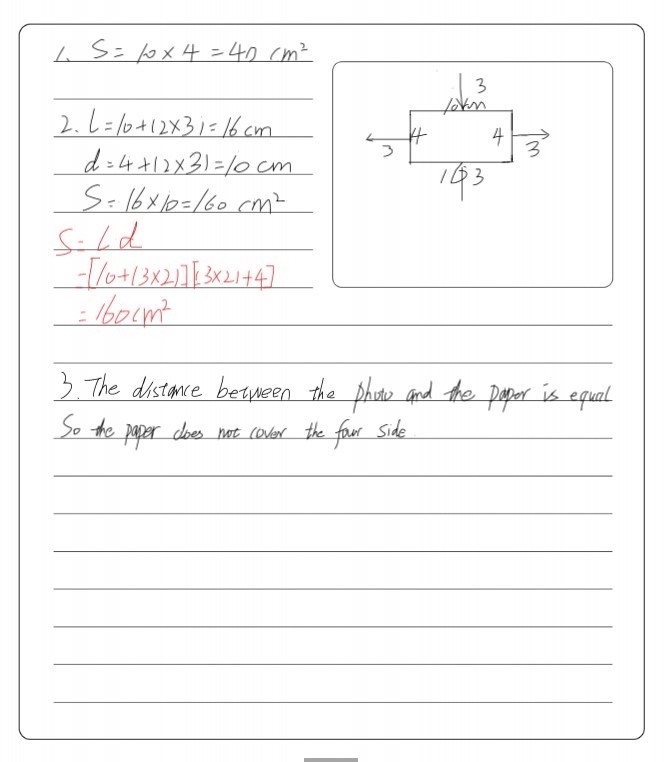 1. S = 10 × 4 = 40 cm²
2. L = 10 + (2 × 3) = 16 cm
d = 4 + (2 × 3) = 10 cm
S = 16 × 10 = 160 cm²
S = L d
= [10 + (3 × 2)] [(3 × 2) + 4]
= 160 cm²
3
10cm
4
4
3
3
10
3
3. The distance between the photo and the paper is equal
So the paper does not cover the four side.